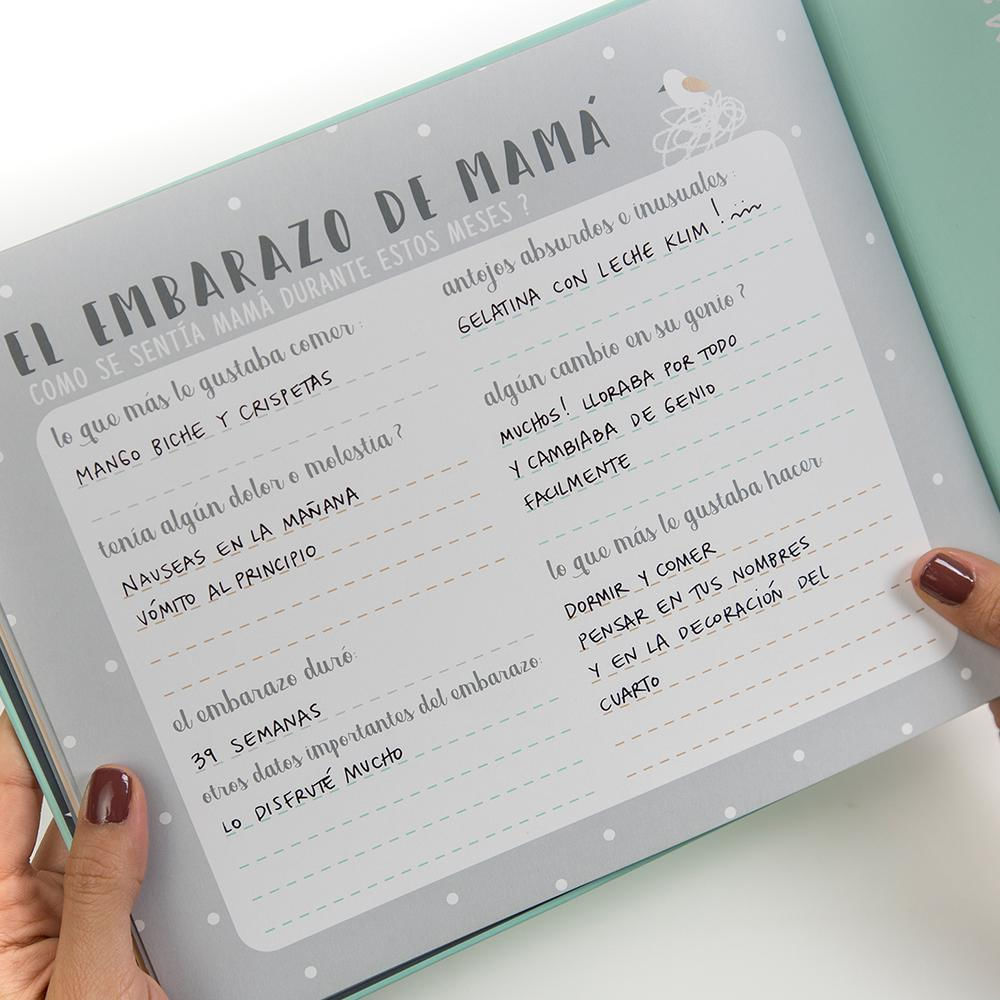 EL EMBARAZO DE MAMÁ
COMO SE SENTÍA MAMÁ DURANTE ESTOS MESES ?
lo que más le gustaba comer:
MANGO BICHE Y CRISPETAS
tenía algún dolor o molestia?
NAUSEAS EN LA MAÑANA
VÓMITO AL PRINCIPIO
el embarazo duró:
39 SEMANAS
otros datos importantes del embarazo:
LO DISFRUTÉ MUCHO
antojos absurdos e inusuales:
GELATINA CON LECHE KLIM !
algún cambio en su genio?
MUCHOS! LLORABA POR TODO
Y CAMBIABA DE GENIO
FACILMENTE
lo que más le gustaba hacer:
DORMIR Y COMER
PENSAR EN TUS NOMBRES
Y EN LA DECORACIÓN DEL
CUARTO